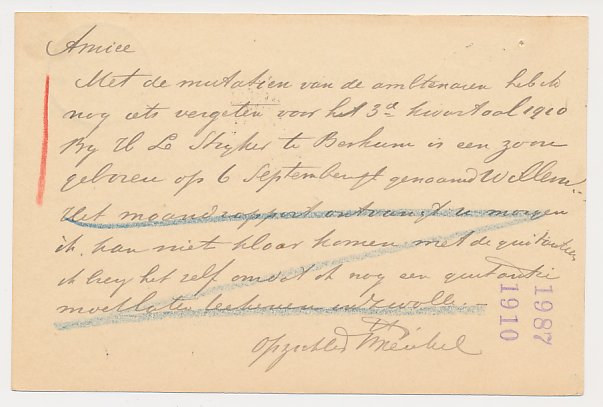 Amice
Met de mutatien van de ambtenaren heb ik
nog iets vergeten voor het 3e kwartaal 1910
By H Le Stryker te Berkum is een zoon
geboren op 6 September jl genaamd Willem.
Het maandrapport ontvangt u morgen
ik kan niet klaar komen met de quitantien
ik kreg het zelf omdat ik nog een quitantie
moest te teekenen in Zwolle.
opzichter
1987
1910